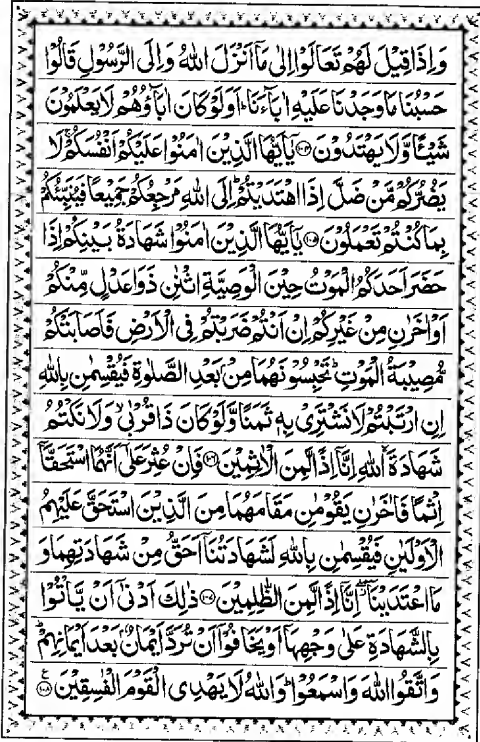 وَاِذَا قِيْلَ لَهُمْ تَعَالَوْا اِلٰى مَاۤ اَنْزَلَ اللّٰهُ وَ اِلَى الرَّسُوْلِ قَالُوْا
حَسْبُنَا مَا وَجَدْنَا عَلَيْهِ اٰبَآءَنَا ؕ اَوَلَوْ كَانَ اٰبَآؤُهُمْ لَا يَعْلَمُوْنَ
شَيْـًٔا وَّلَا يَهْتَدُوْنَ ﴿۱۰۴﴾ يٰۤاَيُّهَا الَّذِيْنَ اٰمَنُوْا عَلَيْكُمْ اَنْفُسَكُمْ ۚ لَا
يَضُرُّكُمْ مَّنْ ضَلَّ اِذَا اهْتَدَيْتُمْ ؕ اِلَى اللّٰهِ مَرْجِعُكُمْ جَمِيْعًا فَيُنَبِّئُكُمْ
بِمَا كُنْتُمْ تَعْمَلُوْنَ ﴿۱۰۵﴾ يٰۤاَيُّهَا الَّذِيْنَ اٰمَنُوْا شَهَادَةُ بَيْنِكُمْ اِذَا
حَضَرَ اَحَدَكُمُ الْمَوْتُ حِيْنَ الْوَصِيَّةِ اثْنٰنِ ذَوَا عَدْلٍ مِّنْكُمْ
اَوْ اٰخَرٰنِ مِنْ غَيْرِكُمْ اِنْ اَنْتُمْ ضَرَبْتُمْ فِى الْاَرْضِ فَاَصَابَتْكُمْ
مُّصِيْبَةُ الْمَوْتِ ؕ تَحْبِسُوْنَهُمَا مِنْۢ بَعْدِ الصَّلٰوةِ فَيُقْسِمٰنِ بِاللّٰهِ
اِنِ ارْتَبْتُمْ لَا نَشْتَرِىْ بِهٖ ثَمَنًا وَّلَوْ كَانَ ذَا قُرْبٰى ۙ وَلَا نَكْتُمُ
شَهَادَةَ ۙ اللّٰهِ اِنَّاۤ اِذًا لَّمِنَ الْاٰثِمِيْنَ ﴿۱۰۶﴾ فَاِنْ عُثِرَ عَلٰۤى اَنَّهُمَا اسْتَحَقَّاۤ
اِثْمًا فَاٰخَرٰنِ يَقُوْمٰنِ مَقَامَهُمَا مِنَ الَّذِيْنَ اسْتَحَقَّ عَلَيْهِمُ
الْاَوْلَيٰنِ فَيُقْسِمٰنِ بِاللّٰهِ لَشَهَادَتُنَاۤ اَحَقُّ مِنْ شَهَادَتِهِمَا وَ
مَا اعْتَدَيْنَاۤ ۖ اِنَّاۤ اِذًا لَّمِنَ الظّٰلِمِيْنَ ﴿۱۰۷﴾ ذٰلِكَ اَدْنٰٓى اَنْ يَّاْتُوْا
بِالشَّهَادَةِ عَلٰى وَجْهِهَاۤ اَوْ يَخَافُوْۤا اَنْ تُرَدَّ اَيْمَانٌۢ بَعْدَ اَيْمَانِهِمْ ؕ
وَاتَّقُوا اللّٰهَ وَاسْمَعُوْا ؕ وَاللّٰهُ لَا يَهْدِى الْقَوْمَ الْفٰسِقِيْنَ ﴿۱۰۸﴾ ع